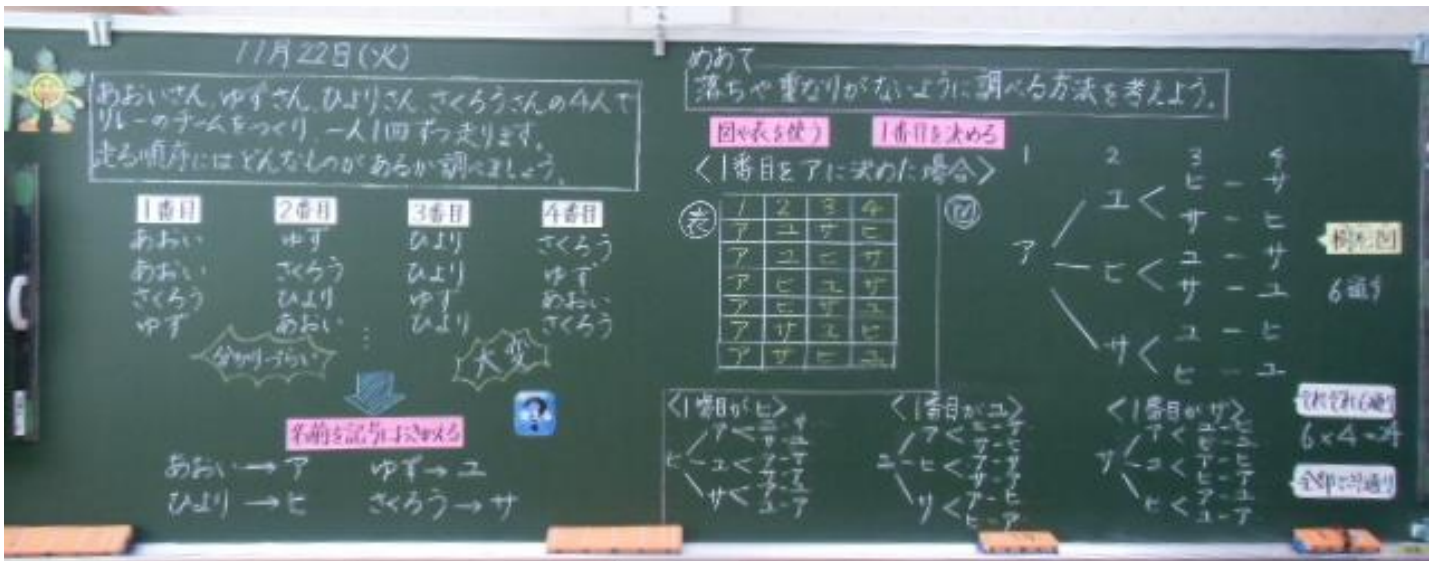 11月22日(火)
あおいさん、ゆずさん、ひよりさん、さくろうさんの4人で
リレーのチームをつくり、一人1回ずつ走ります。
走る順序にはどんなものがあるか調べましょう。
1番目 2番目 3番目 4番目
あおい ゆず ひより さくろう
あおい さくろう ひより ゆず
さくろう ひより ゆず あおい
ゆず あおい ひより さくろう
分かりづらい
大変
名前を記号におきかえる
あおい→ア ゆず→ユ
ひより→ヒ さくろう→サ
めあて
落ちや重なりがないように調べる方法を考えよう。
図や表を使う 1番目を決める
<1番目をアに決めた場合>
表
1 2 3 4
ア ユ サ ヒ
ア ユ ヒ サ
ア ヒ ユ サ
ア ヒ サ ユ
ア サ ユ ヒ
ア サ ヒ ユ
図
1 2 3 4
ア
ユ
ヒ - サ
サ - ヒ
ヒ
ユ - サ
サ - ユ
サ
ユ - ヒ
ヒ - ユ
樹形図
6通り
<1番目がヒ>
ヒ
ア
ユ
サ
<1番目がユ>
ユ
ア
ヒ
サ
ア-ヒ
ヒ-ア
<1番目がサ>
サ
ア
ユ
ア-ヒ
ヒ-ア
ヒ
ア-ユ
ユ-ア
それぞれ6通り
6×4=24
全部で24通り